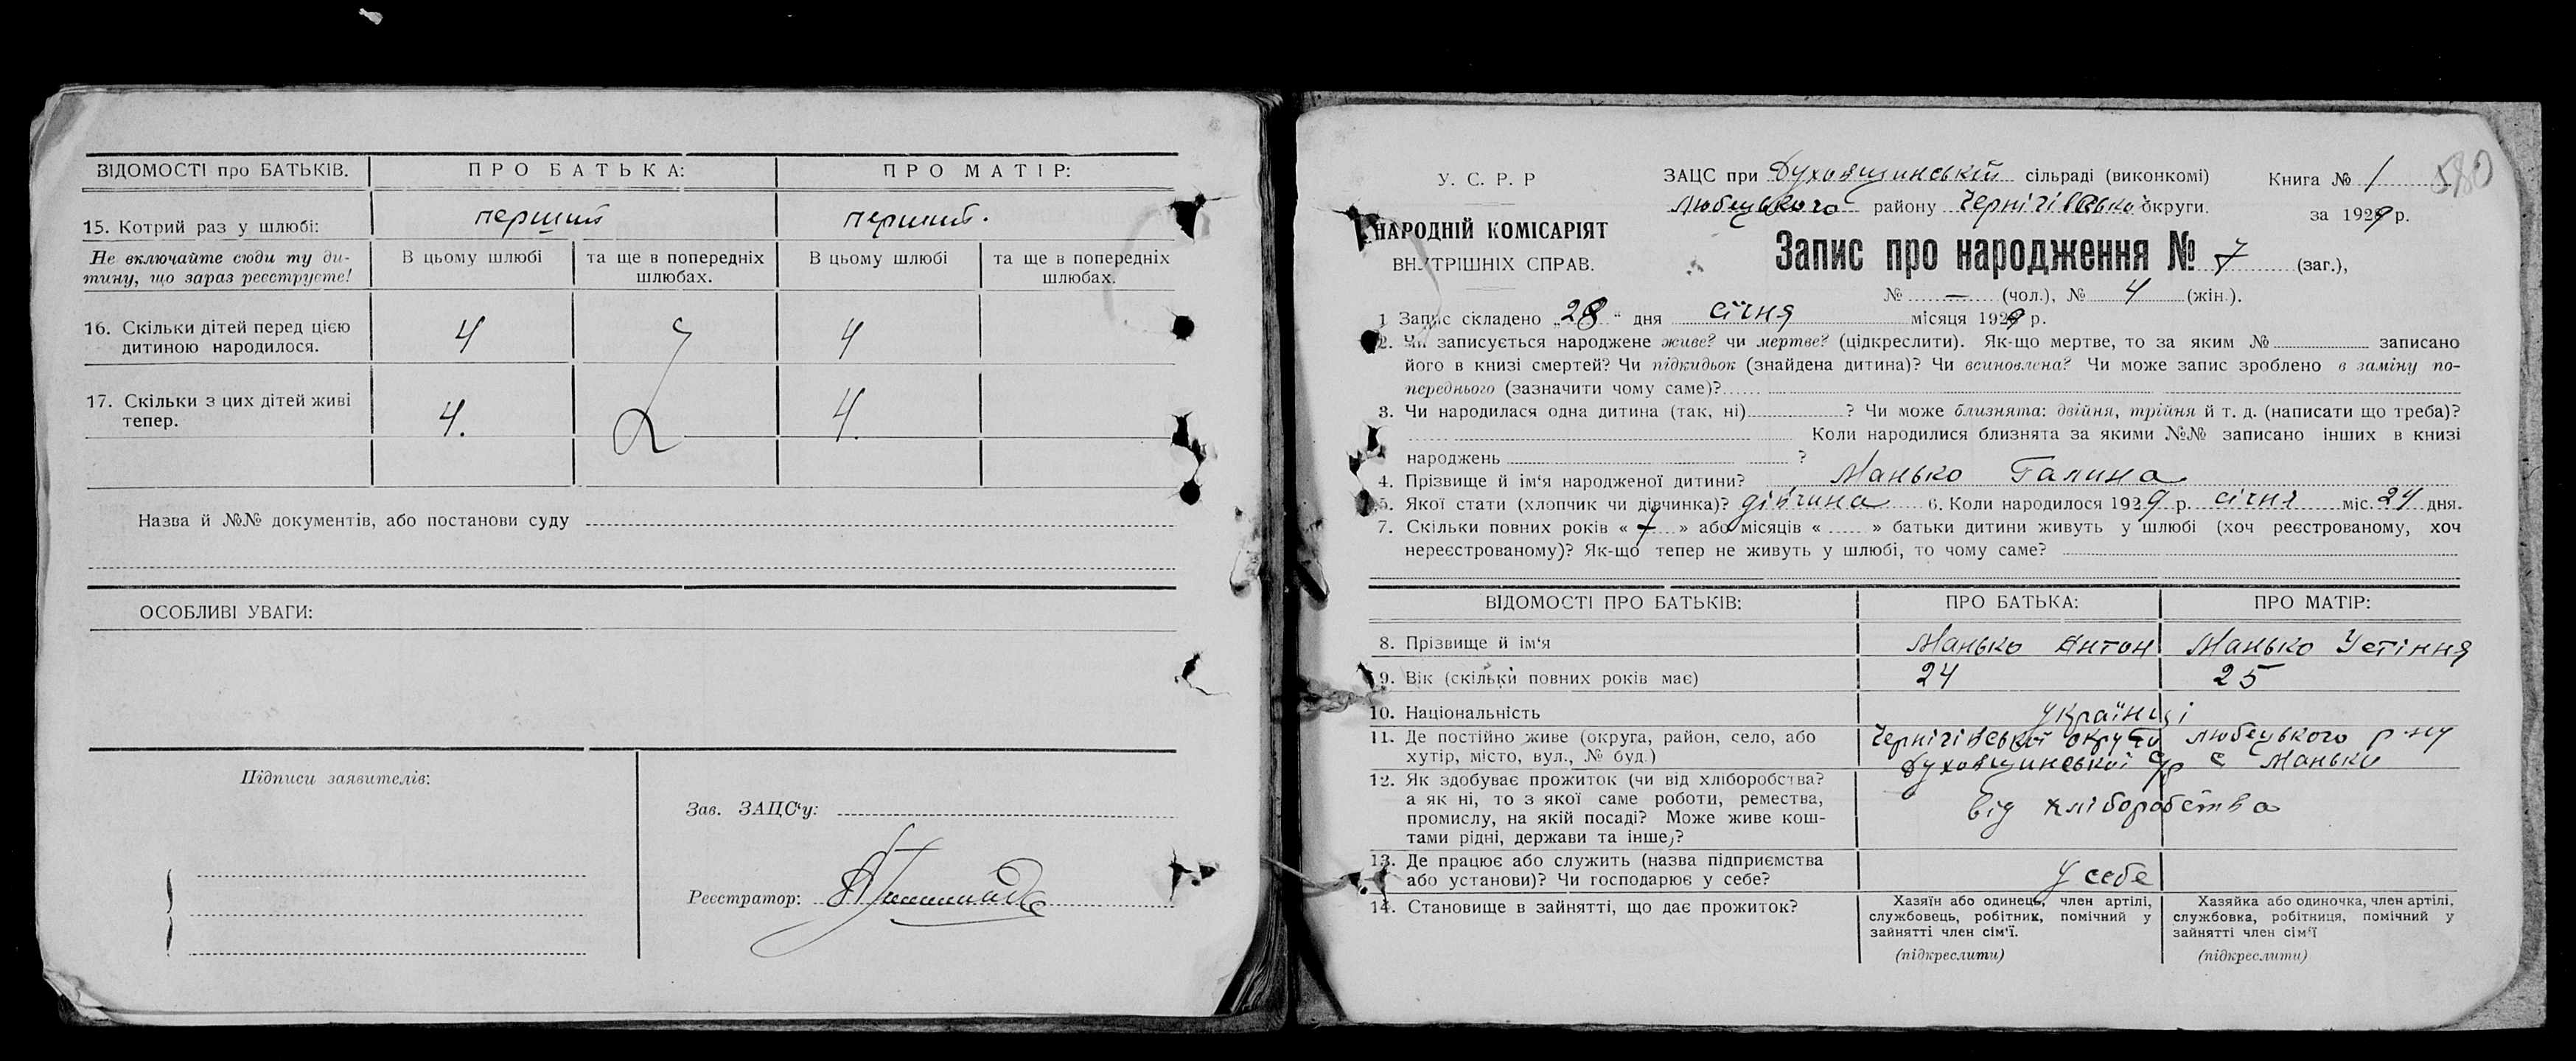 ВІДОМОСТІ про БАТЬКІВ. ПРО БАТЬКА: ПРО МАТІР:
15. Котрий раз у шлюбі: перший перший.
Не включайте сюди ту ди-
тину, що зараз реєструєте!
В цьому шлюбі та ще в попередніх шлюбах. В цьому шлюбі та ще в попередніх шлюбах.
16. Скільки дітей перед цією
дитиною народилося. 4 4
17. Скільки з цих дітей живі
тепер. 4. 4.
Назва й №№ документів, або постанови суду
ОСОБЛИВІ УВАГИ:
Підписи заявителів:
Зав. ЗАЦС'у:
Реєстратор:
580
У. С. Р. Р
НАРОДНІЙ КОМІСАРІЯТ
ВНУТРІШНІХ СПРАВ.
ЗАЦС при Духовщинській сільраді (виконкомі)
Любецького району Чернігівської округи.
Книга № 1
за 1929 р.
Запис про народження № 7 (заг.),
№ — (чол.), № 4 (жін.).
1 Запис складено „28“ дня січня місяця 1929 р.
2. Чи записується народжене живе? чи мертве? (підкреслити). Як-що мертве, то за яким № записано
його в книзі смертей? Чи підкидьок (знайдена дитина)? Чи всиновлена? Чи може запис зроблено в заміну по-
переднього (зазначити чому саме)?
3. Чи народилася одна дитина (так, ні) ? Чи може близнята: двійня, трійня й т. д. (написати що треба)?
Коли народилися близнята за якими №№ записано інших в книзі
народжень ?
4. Прізвище й ім'я народженої дитини? Манько Галина
5. Якої стати (хлопчик чи дівчинка)? дівчина 6. Коли народилося 1929 р. січня міс. 24 дня.
7. Скільки повних років « 7 » або місяців « » батьки дитини живуть у шлюбі (хоч реєстрованому, хоч
нереєстрованому)? Як-що тепер не живуть у шлюбі, то чому саме?
ВІДОМОСТІ ПРО БАТЬКІВ: ПРО БАТЬКА: ПРО МАТІР:
8. Прізвище й ім'я Манько Антон Манько Устіння
9. Вік (скільки повних років має) 24 25
10. Національність українці
11. Де постійно живе (округа, район, село, або
хутір, місто, вул., № буд.)
Чернігівської округи Любецького р-ну
Духовщинської с/р с Маньки
12. Як здобуває прожиток (чи від хліборобства?
а як ні, то з якої саме роботи, ремества,
промислу, на якій посаді? Може живе кош-
тами рідні, держави та інше,?
від хліборобства
13. Де працює або служить (назва підприємства
або установи)? Чи господарює у себе? у себе
14. Становище в зайнятті, що дає прожиток?
Хазяїн або одинець, член артілі,
службовець, робітник, помічний у
зайнятті член сім'ї.
(підкреслити)
Хазяйка або одиночка, член артілі,
службовка, робітниця, помічний у
зайнятті член сім'ї
(підкреслити)